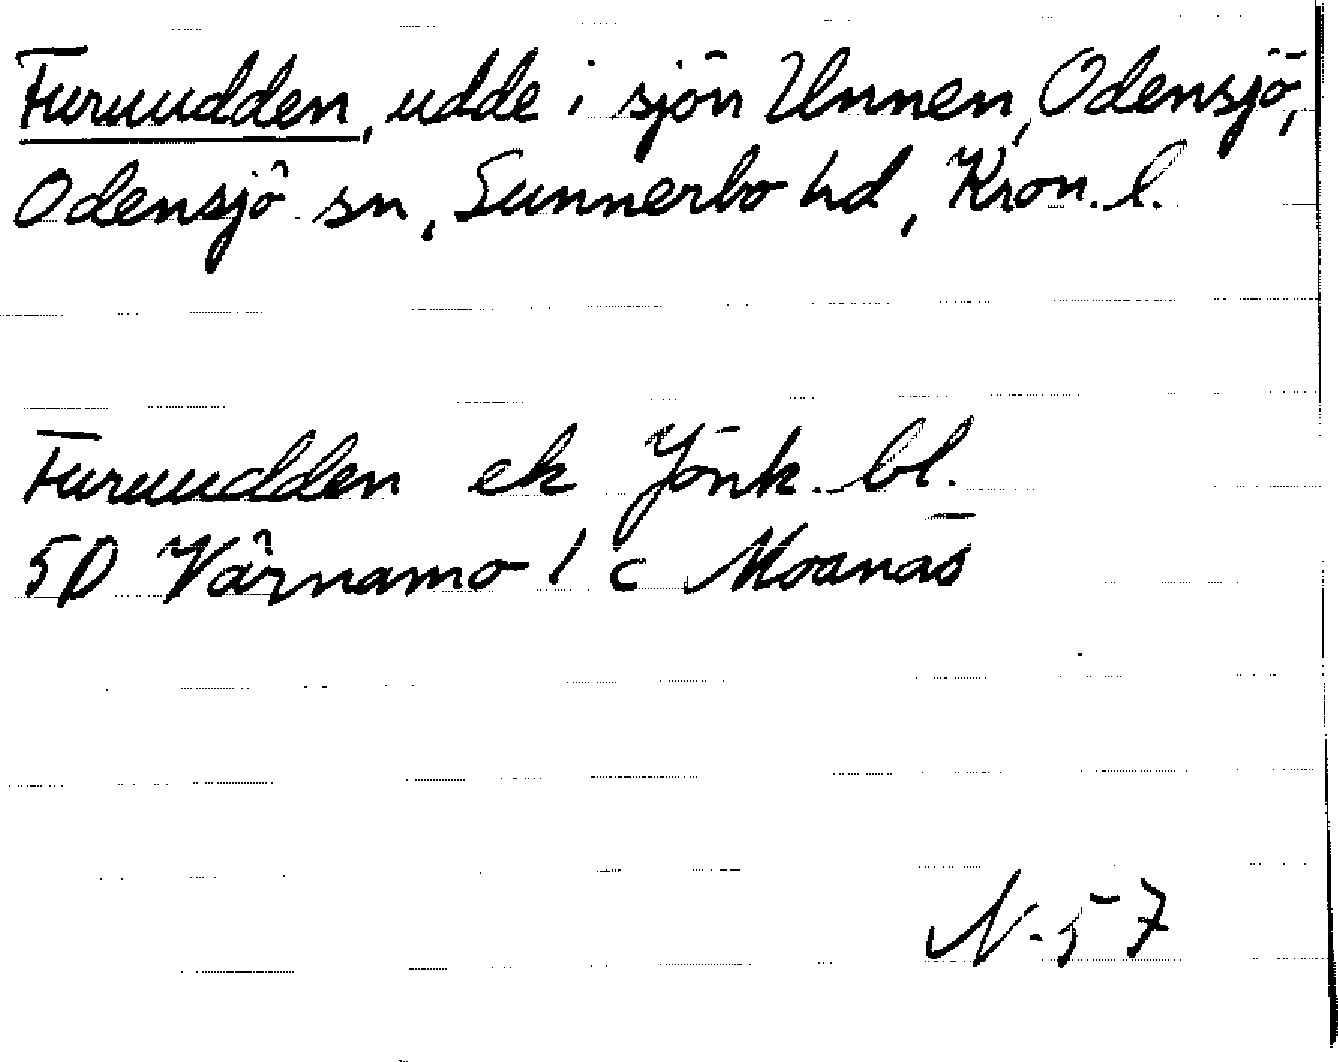 Furuudden, udde i sjön Unnen, Odensjö,
Odensjö sn, Sunnerbo hd, Kron. l.
Furuudden ek Jönk. bl.
5D Värnamo 1 c Moanäs
N-57